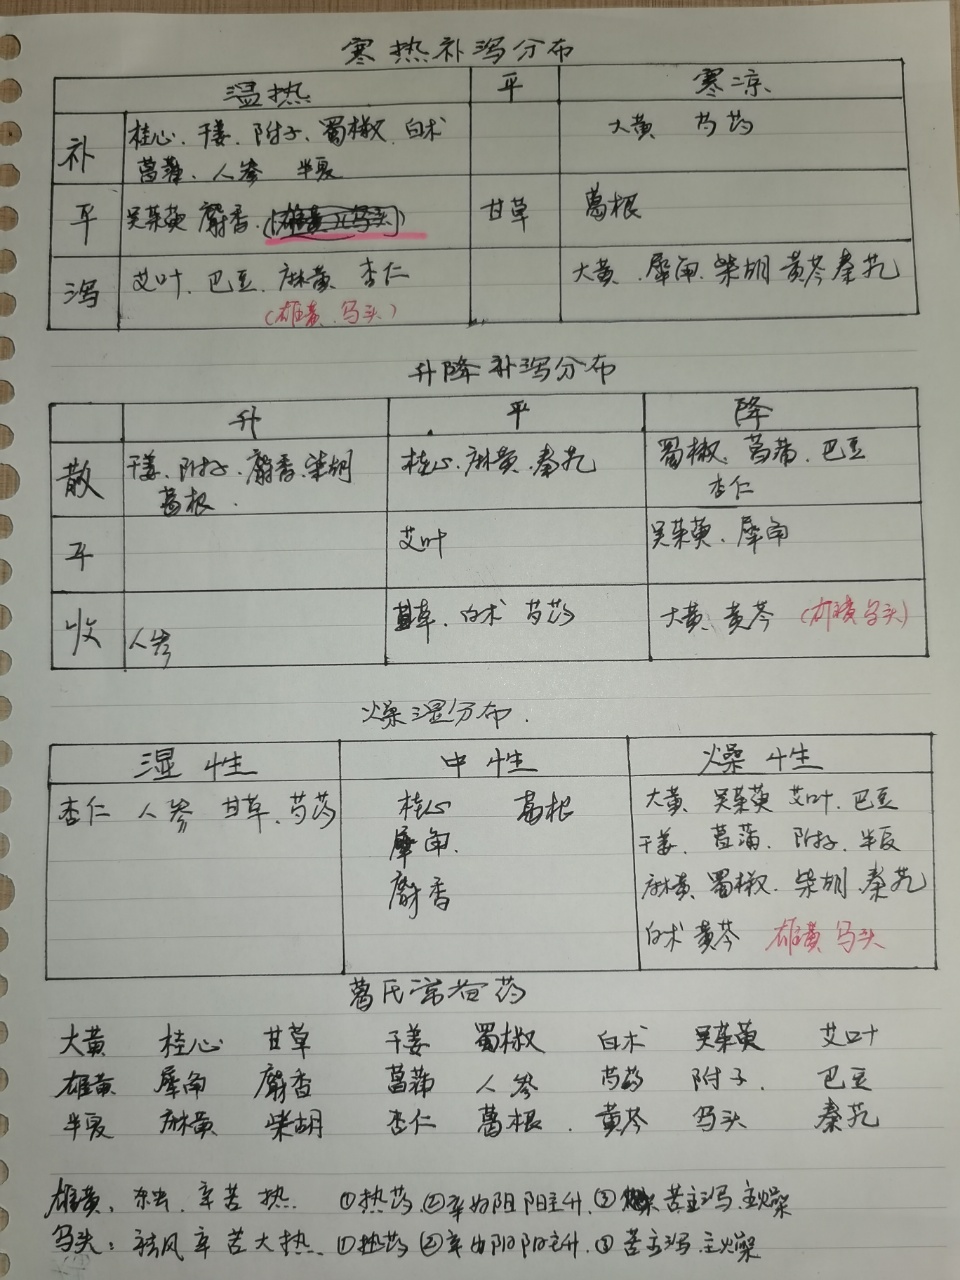 寒热补泻分布
温热 平 寒凉
补 桂心、干姜、附子、蜀椒、白术 大黄 芍药
菖蒲、人参 半夏
平 吴茱萸 麝香、 甘草 葛根
泻 艾叶、巴豆、麻黄 杏仁 大黄、犀角、柴胡 黄芩 秦艽
(雄黄、乌头)
升降补泻分布
升 平 降
散 干姜、附子、麝香、柴胡 桂心、麻黄、秦艽 蜀椒、菖蒲、巴豆
葛根、 杏仁
平 艾叶 吴茱萸、犀角
收 人参 甘草、白术 芍药 大黄、黄芩 (雄黄 乌头)
燥湿分布.
湿性 中性 燥性
杏仁 人参 甘草、芍药 桂心 葛根 大黄 吴茱萸 艾叶、巴豆
犀角. 干姜、菖蒲、附子、半夏
麝香 麻黄、蜀椒、柴胡、秦艽
白术 黄芩 雄黄 乌头
葛氏常备药
大黄 桂心 甘草 干姜 蜀椒 白术 吴茱萸 艾叶
雄黄 犀角 麝香 菖蒲 人参 芍药 附子. 巴豆
半夏 麻黄 柴胡 杏仁 葛根. 黄芩 乌头 秦艽
雄黄、 辛苦 热. ①热药 ②辛 阳 阳主升 ③ 苦主泻.主燥
乌头: 祛风 辛苦大热. ①热药 ②辛 阳 阳主升 ③苦主泻.主燥